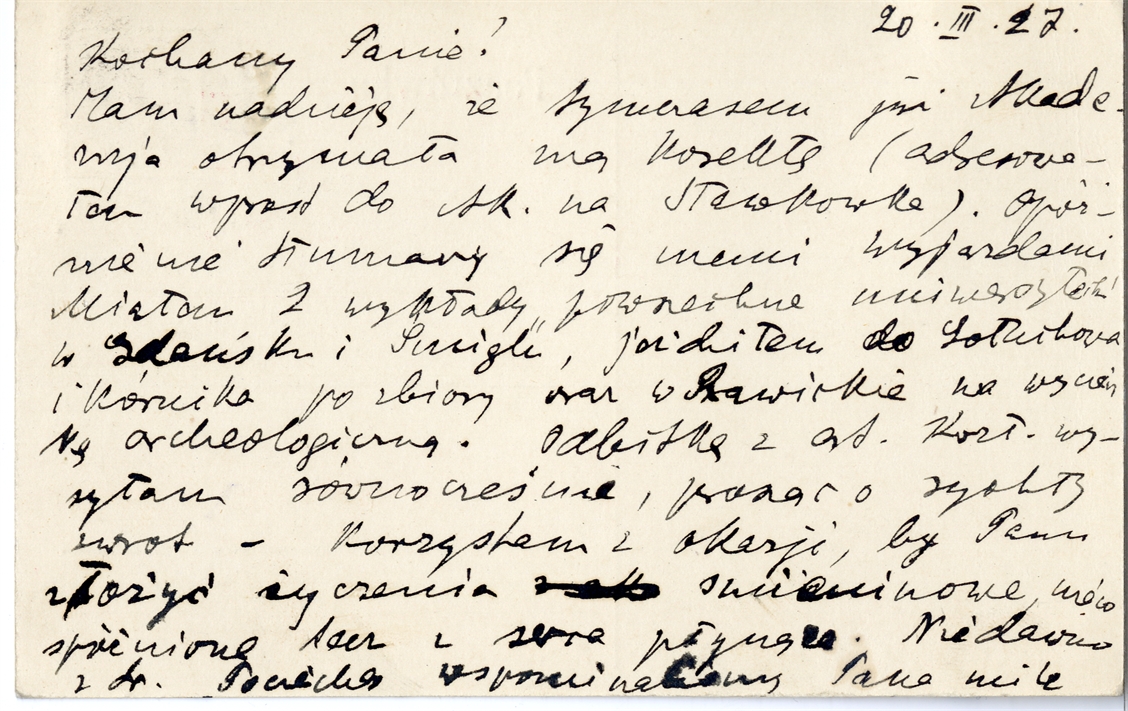 20.III.27.
Kochany Panie!
Mam nadzieję, że tymczasem już Akade-
mja otrzymała mą korektę (adresowa-
łem wprost do Ak. na Sławkowską). Opóź-
nienie tłumaczy się memi wyjazdami
Miałem 2 wykłady "powszechne uniwersyteckie"
w Gdańsku i Śmiglu, jeździłem do
i Kórnika po zbiory oraz w Rawickie na wyciecz
kę archeologiczną. Odbitkę z art. Kozł. wy-
syłam równocześnie, prosząc o rychły
zwrot – Korzystam z okazji, by Panu
złożyć życzenia imieninowe, nieco
spóźnione lecz z serca płynące. Niedawno
z dr. wspominaliśmy Pana mile